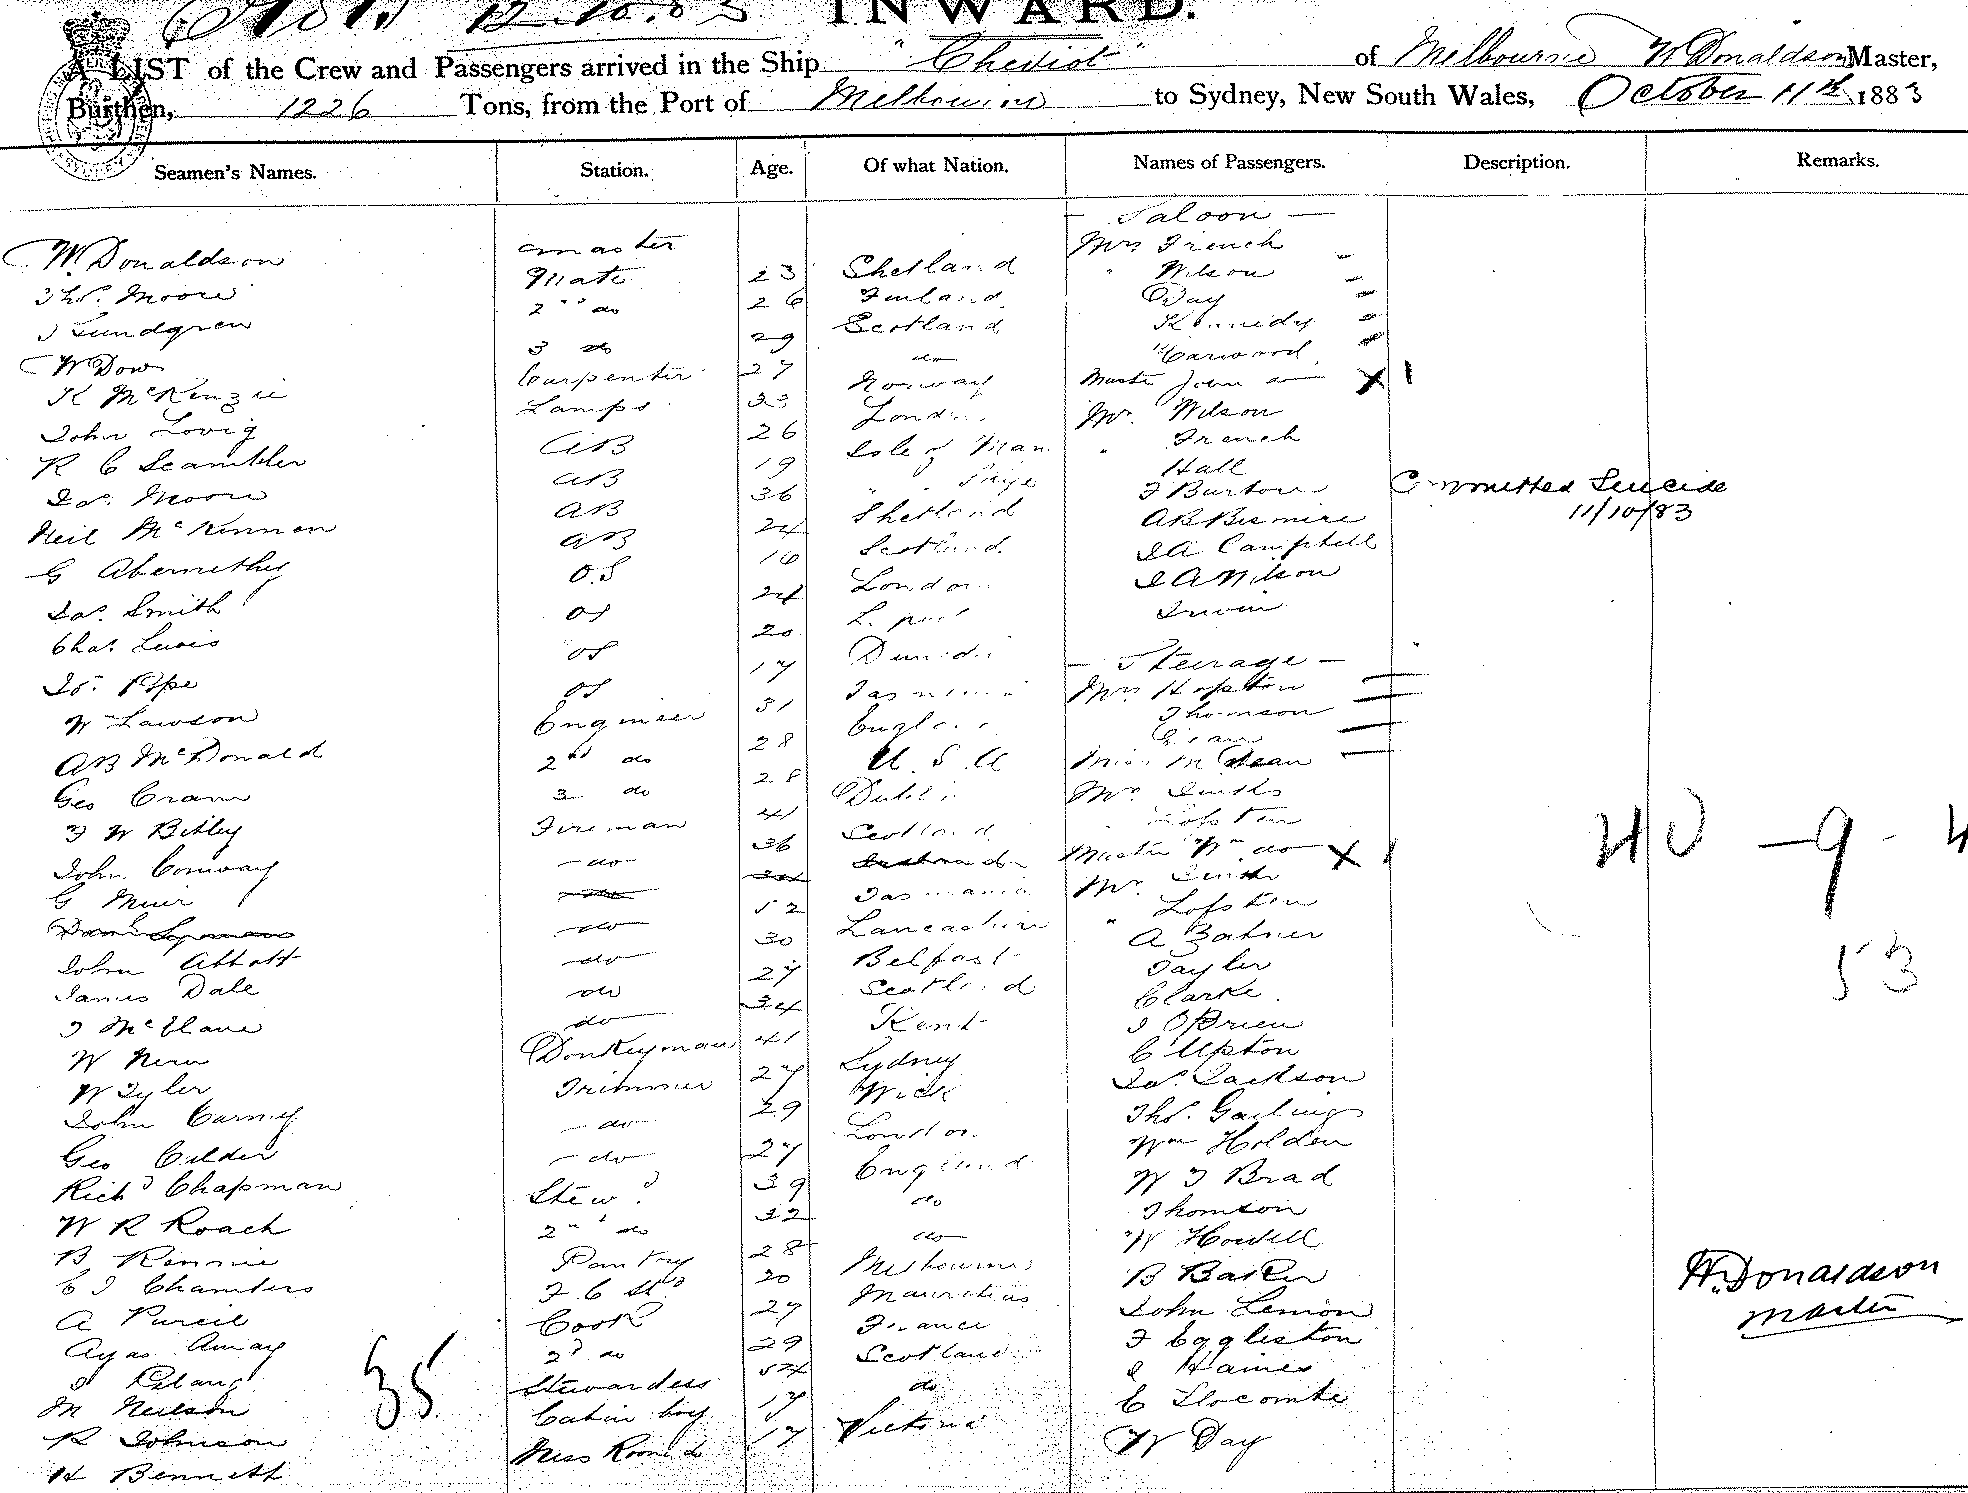 12.10.83 INWARD.
A LIST of the Crew and Passengers arrived in the Ship "Cheviot" of Melbourne W Donaldson Master,
Burthen, 1226 Tons, from the Port of Melbourne to Sydney, New South Wales, October 11th 1883
Seamen's Names. Station. Age. Of what Nation. Names of Passengers. Description. Remarks.
— Saloon —
W. Donaldson master Mrs French
Thos. Moore Mate 23 Shetland " Wilson
J Lundgren 2nd do 26 Finland Day
W Dow 3 do 29 Scotland Kennedy
K McKenzie Carpenter 27 do Carwood
John Lovig Lamps 23 Norway Master John do X 1
R C Scambler AB 26 London Mr. Wilson
Jas. Moore AB 19 Isle of Man " French
Neil McKinnon AB 36 " " Skye Hall
G Abernethy AB 24 Shetland F Burton
Committed Suicide
11/10/83
Jas. Smith O.S 16 Scotland AB Bismire
Chas. Lewis OS 24 London JA Campbell
Js. Pope OS 20 L. pool J A Wilson
W Lawson OS 17 Dunedin Irwin
— Steerage —
AB McDonald Engineer 31 Tasmania Mrs Hopton
Geo Cram 2nd do 28 England Thomson
F W Betley 3 do 28 U. S. A
John Conway Fireman 41 Dublin Miss M Dean
G Muir — do — 36 Scotland Mrs. Smith
Lofsten
Master Wm do X 1
John Abbott do 52 Tasmania Mr. Smith
James Dale do 30 Lancashire " Lofsten
J McElane do 27 Belfast A Batner
W New do 34 Scotland Tayler
W Tyler Donkeyman 41 Kent Clarke
John Carney Trimmer 27 Sydney J OBrien
Geo Calder — do 29 Wick C Upton
Richd Chapman — do 27 London Jas. Jackson
W R Roach Stewd. 39 England Thos. Garling
B Rennie 2nd do 32 do Wm Holden
C J Chambers Pantry 28 do W J Brad
A Pureil F C Std 20 Melbourne Thomson
Ayas Amay Cook 27 Mauritius W Howell
2d do 29 France B Baker
M Neilson Stewardess 54 Scotland John Lemon
R Johnson Cabin boy 17 do F Eggleston
H Bennett Mess Room do 17 Victoria J Haines
E Slocombe
W Day
35
40 — 9 - 4
53
W. Donaldson
master